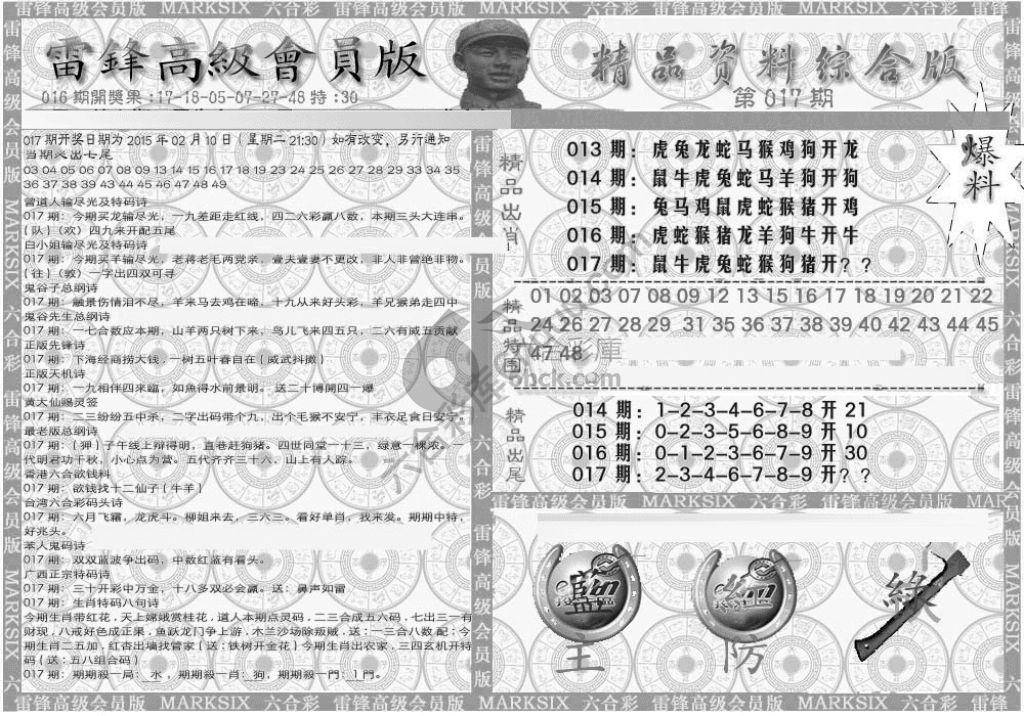 雷锋高级会员版 MARKSIX 六合彩 雷锋高级会员版 MARKSIX 六合彩 雷锋高级会员版 MARKSIX 六合彩 雷锋
雷鋒高級會員版
016期開獎果:17-18-05-07-27-48特:30
精品资料综合版
第017期
爆料
017期开奖日期为2015年02月10日(星期二21:30)如有改变,另行通知
当期必出七尾
03 04 05 06 07 08 09 13 14 15 16 17 18 19 23 24 25 26 27 28 29 33 34 35
36 37 38 39 43 44 45 46 47 48 49
曾道人输尽光及特码诗
017期:今期买龙输尽光,一九差距走红线,四二六彩赢八数,本期三头大连串。
{队}(欢)四九来开配五尾
白小姐输尽光及特码诗
017期:今期买羊输尽光,老蒋老毛两党亲,壹夫壹妻不更改,非人非曾绝非物。
{往}(敦)一字出四双可寻
鬼谷子总纲诗
017期:融景伤情泪不尽,羊来马去鸡在啼,十九从来好头彩,羊兄猴弟走四中
鬼谷先生总纲诗
017期:一七合数应本期,山羊两只树下来,鸟儿飞来四五只,二六有威五贡献
正版先锋诗
017期:下海经商捞大钱,一树五叶春自在{威武抖擞}
正版天机诗
017期:一九相伴四来臨,如魚得水前景明。送二十博開四一爆
黄大仙赐灵签
017期:二三纷纷五中杀,二字出码带个九,出个毛猴不安宁,丰衣足食日安宁。
最老版总纲诗
017期:{狎}子午线上辩得明,直巷赶狗猪。四世同堂一十三,绿意一棵浓。一
代明君功千秋,小心点为营。五代齐齐三十六,山上有人踪。
香港六合欲钱料
017期:欲钱找十二仙子{牛羊}
台湾六合彩码头诗
017期:六月飞霜,龙虎斗。柳姐来去,三六三。看好单肖,我来发。期期中特,
好兆头。
苯人鬼码诗
017期:双双蓝波争出码,中数红蓝有看头。
广西正宗特码诗
017期:三十开彩中万金,十八多双必会赢。送:鼻声如雷
017期:生肖特码八句诗
今期生肖带红花,天上嫦娥赏桂花,道人本期点灵码,二三合成五六码,七出三一有
财现,八戒好色成正果,鱼跃龙门争上游,木兰沙场除叛贼,送:一三合八数配:今
期生肖二五加,红杏出墙找管家{送:铁树开金花}今期生肖出农家,三四玄机开特
码{送:五八组合码}
017期:期期殺一局:水,期期殺一肖:狗,期期殺一門:1門。
精品出肖
013期:虎兔龙蛇马猴鸡狗开龙
014期:鼠牛虎兔蛇马羊狗开狗
015期:兔马鸡鼠虎蛇猴猪开鸡
016期:虎蛇猴猪龙羊狗牛开牛
017期:鼠牛虎兔蛇猴狗猪开??
精品特围
01 02 03 07 08 09 12 13 15 16 17 18 19 20 21 22
24 26 27 28 29 31 35 36 37 38 39 40 42 43 44 45
47 48
精品出尾
014期:1-2-3-4-6-7-8开21
015期:0-2-3-5-6-8-9开10
016期:0-1-2-3-6-7-9开30
017期:2-3-4-6-7-8-9开??
雷锋高级会员版 MARKSIX 六合彩 雷锋高级会员版 MARKSIX
藍 紅 綠
主 防
雷锋高级会员版 MARKSIX 六合彩 雷锋高级会员版 MARKSIX 六合彩 雷锋高级会员版 MARKSIX 六合彩 雷锋